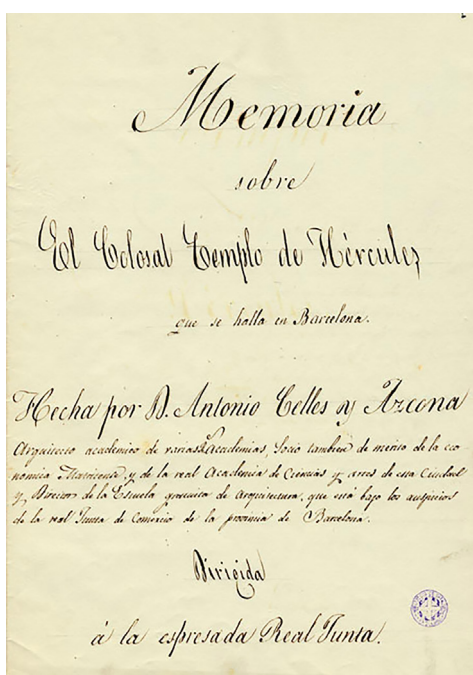 Memoria
sobre
El Colosal Templo de Hércules
que se halla en Barcelona.
Hecha por D. Antonio Celles y Azcona
Arquitecto academico de varias Academias, Socio tambien de merito de la eco-
nomia Matritense, y de la real Academia de Ciencias y artes de esta Ciudad
y Director de la Escuela gratuita de Arquitectura, que está bajo los auspicios
de la real Junta de Comercio de la provincia de Barcelona.
Dirigida
á la espresada Real Junta.